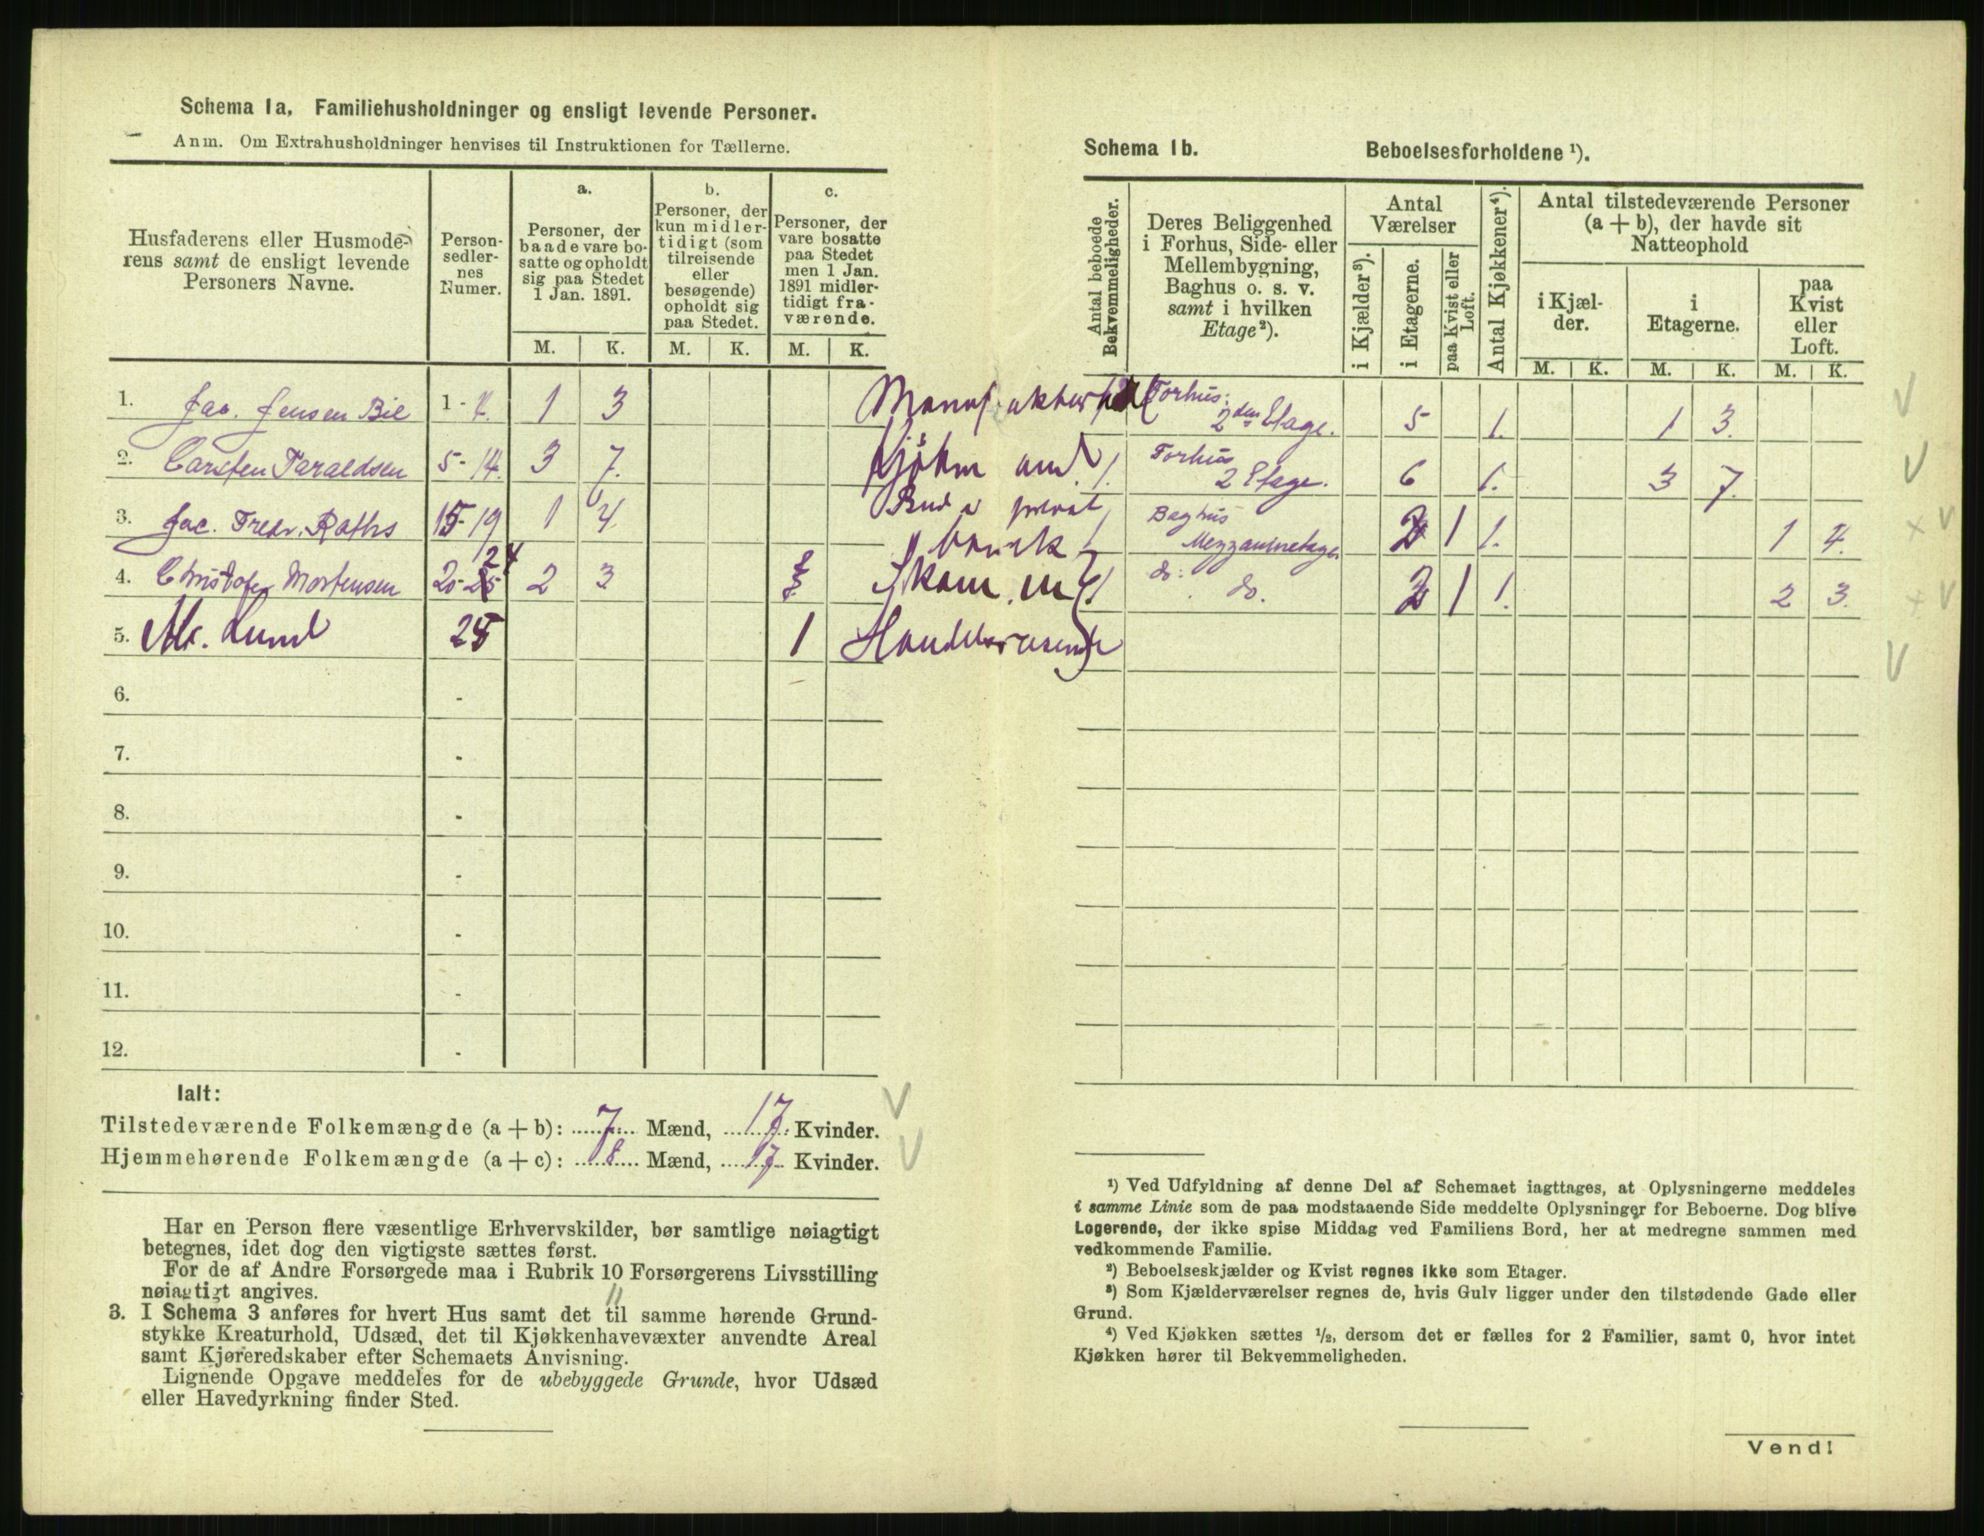 Schema Ia. Familiehusholdninger og ensligt levende Personer.
Anm. Om Extrahusholdninger henvises til Instruktionen for Tællerne.
Husfaderens eller Husmode-
rens samt de ensligt levende
Personers Navne.
Person-
sedler-
nes
Numer.
a.
Personer, der
baade vare bo-
satte og opholdt
sig paa Stedet
1 Jan. 1891.
b.
Personer, der
kun midler-
tidigt (som
tilreisende
eller
besøgende)
opholdt sig
paa Stedet.
c.
Personer, der
vare bosatte
paa Stedet
men 1 Jan.
1891 midler-
tidigt fra-
værende.
M. K. M. K. M. K.
1. Jac. Jensen Bie 1-4. 1 3
2. Carsten Taraldsen 5-14. 3 7.
3. Jac. Fredr. Raths 15-19 1 4
4. Christofer Mortensen 20-24 2 3
5. Lund 25 1 Handelsreisende
6. -
7. -
8. -
9. -
10. -
11. -
12. -
Ialt:
Tilstedeværende Folkemængde (a + b): 7 Mænd, 17 Kvinder.
Hjemmehørende Folkemængde (a + c): 8 Mænd, 17 Kvinder.
Har en Person flere væsentlige Erhvervskilder, bør samtlige nøiagtigt
betegnes, idet dog den vigtigste sættes først.
For de af Andre Forsørgede maa i Rubrik 10 Forsørgerens Livsstilling
nøiagtigt angives.
3. I Schema 3 anføres for hvert Hus samt det til samme hørende Grund-
stykke Kreaturhold, Udsæd, det til Kjøkkenhavevæxter anvendte Areal
samt Kjøreredskaber efter Schemaets Anvisning.
Lignende Opgave meddeles for de ubebyggede Grunde, hvor Udsæd
eller Havedyrkning finder Sted.
Schema Ib. Beboelsesforholdene ¹).
Antal beboede
Bekvemmeligheder.
Deres Beliggenhed
i Forhus, Side- eller
Mellembygning,
Baghus o. s. v.
samt i hvilken
Etage²).
Antal
Værelser
i Kjælder³).
i Etagerne.
paa Kvist eller
Loft.
Antal Kjøkkener⁴).
Antal tilstedeværende Personer
(a + b), der havde sit
Natteophold
i Kjæl-
der.
i
Etagerne.
paa
Kvist
eller
Loft.
M. K. M. K. M. K.
Forhus.
2den Etage. 5 1. 1 3.
Forhus
2 Etage. 6 1. 3 7.
Baghus
Mezzaninetagen 2 1 1. 1 4.
do. do. 2 1 1. 2 3.
¹) Ved Udfyldning af denne Del af Schemaet iagttages, at Oplysningerne meddeles
i samme Linie som de paa modstaaende Side meddelte Oplysninger for Beboerne. Dog blive
Logerende, der ikke spise Middag ved Familiens Bord, her at medregne sammen med
vedkommende Familie.
²) Beboelseskjælder og Kvist regnes ikke som Etager.
³) Som Kjælderværelser regnes de, hvis Gulv ligger under den tilstødende Gade eller
Grund.
⁴) Ved Kjøkken sættes ½, dersom det er fælles for 2 Familier, samt 0, hvor intet
Kjøkken hører til Bekvemmeligheden.
Vend!